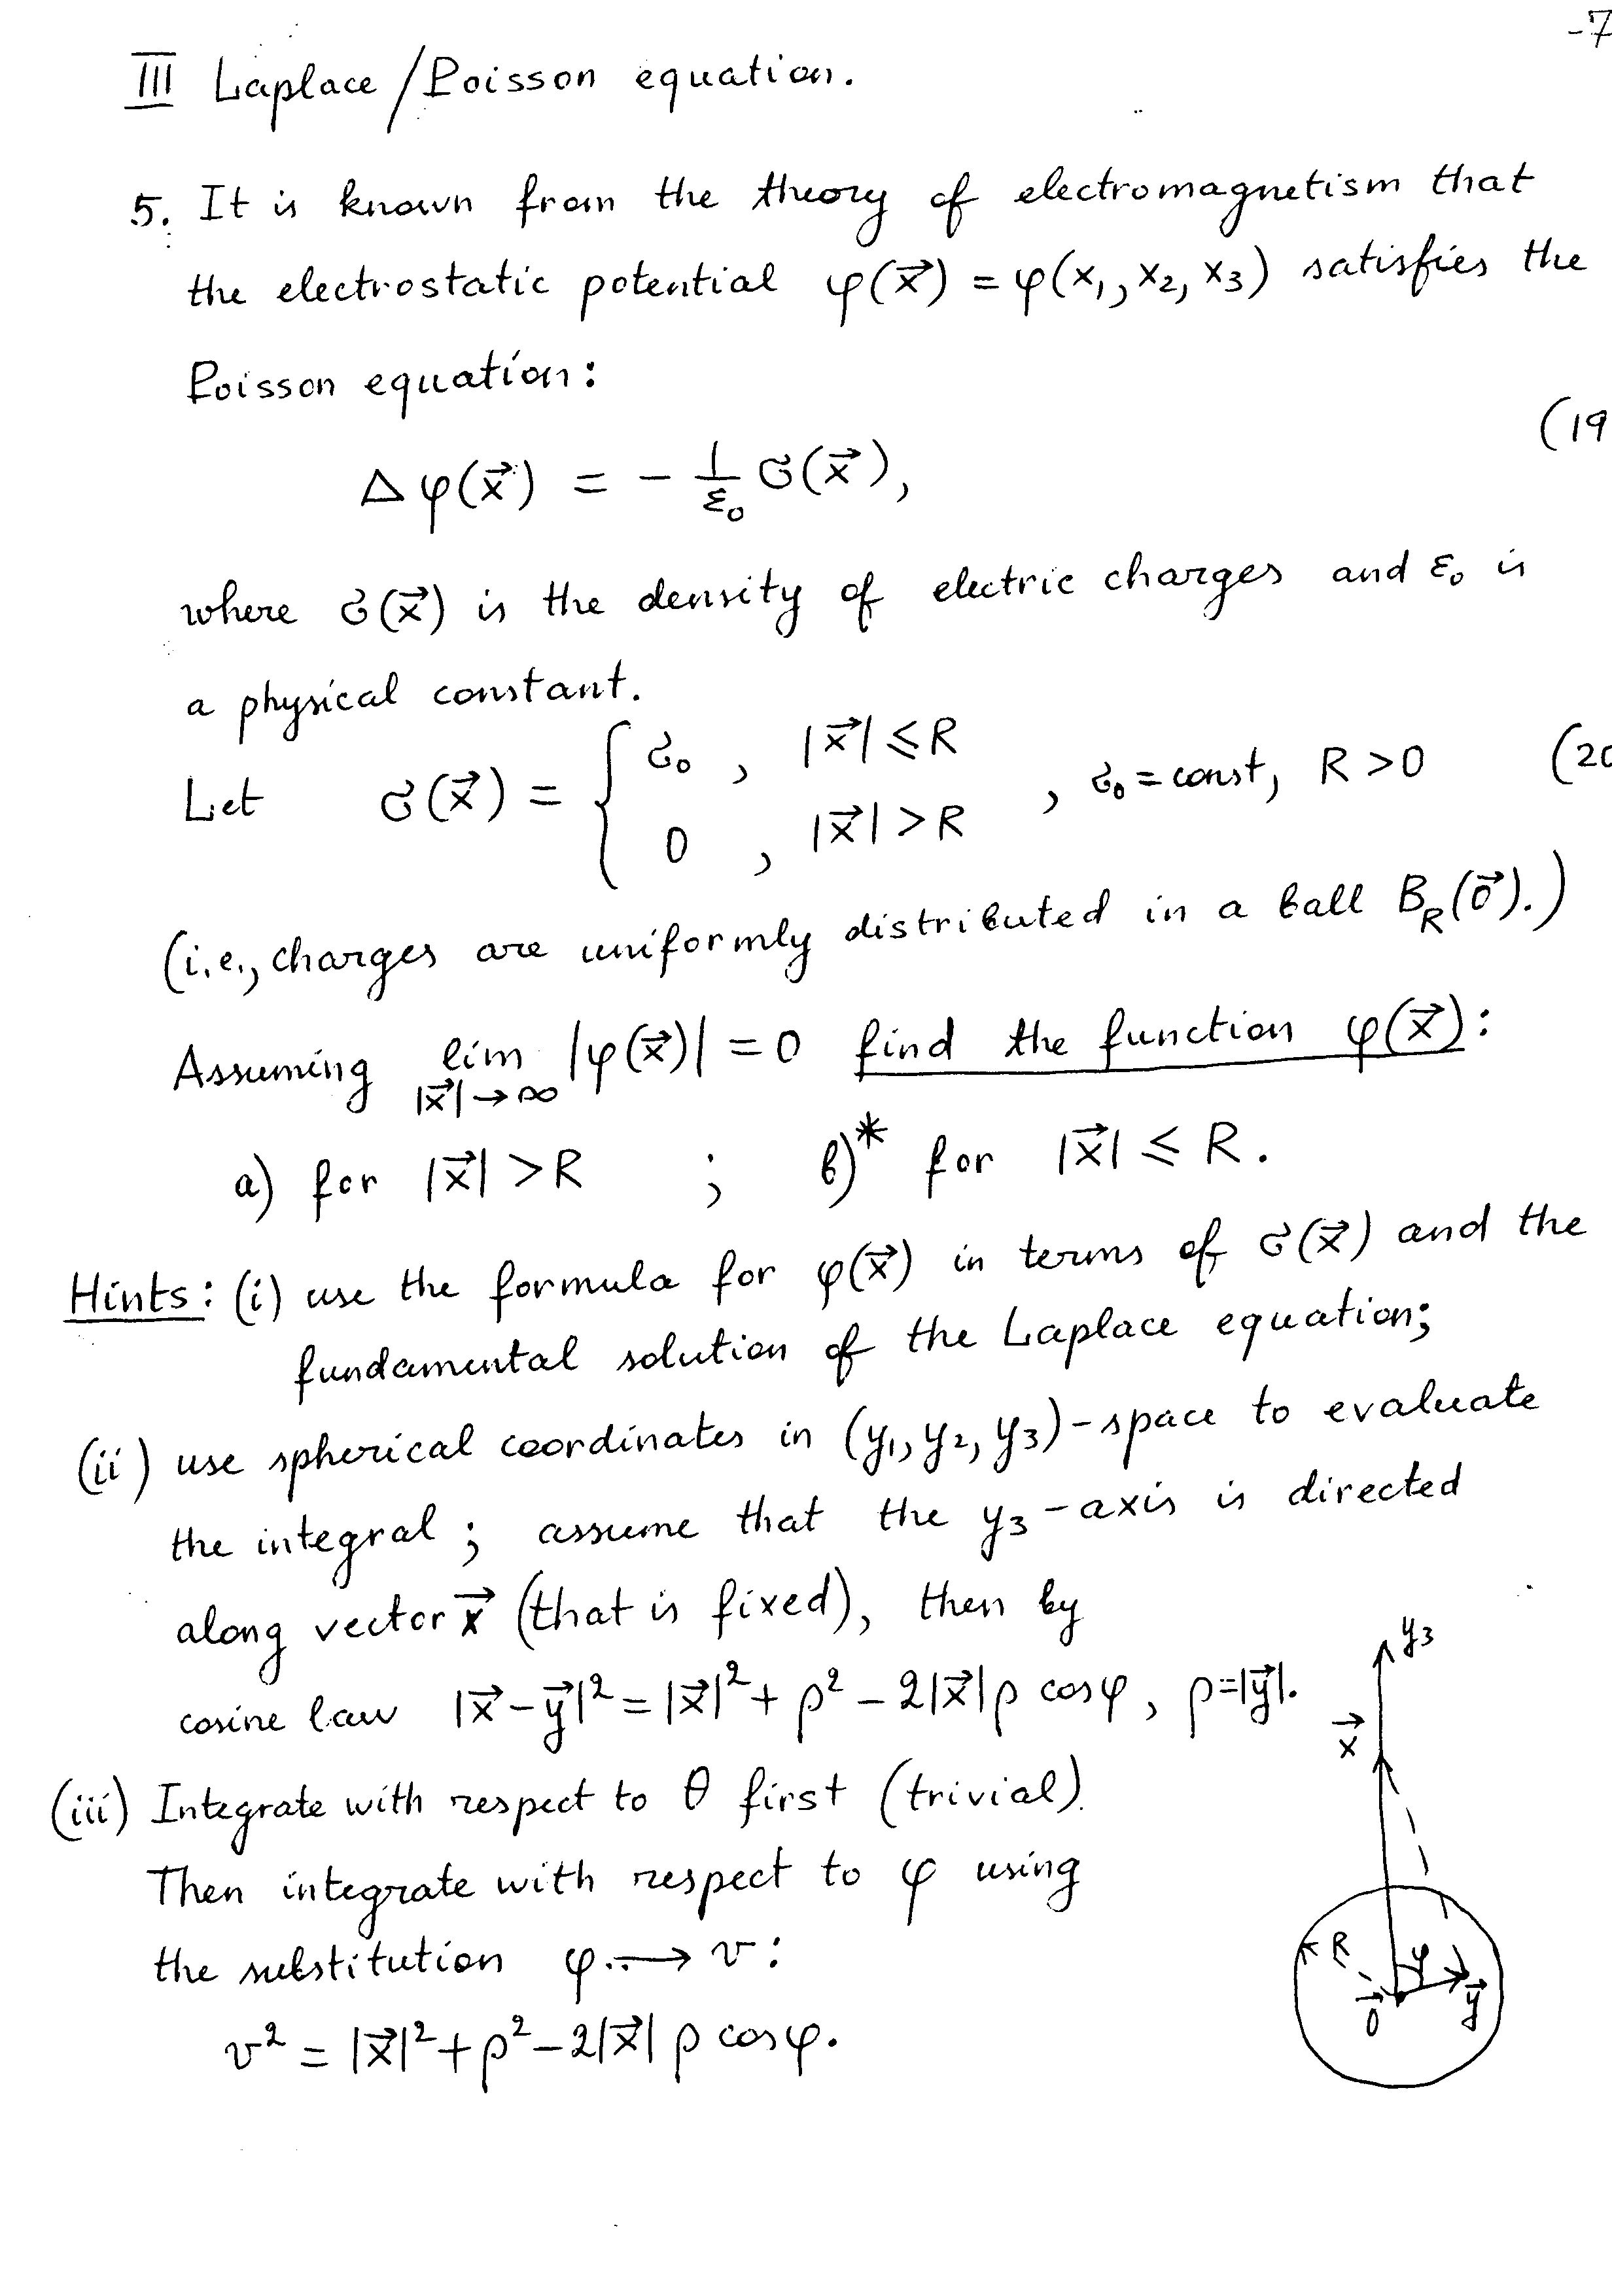 -7
III Laplace/Poisson equation.
5. It is known from the theory of electromagnetism that
the electrostatic potential φ(x⃗) = φ(x₁, x₂, x₃) satisfies the
Poisson equation:
(19
Δφ(x⃗) = - 1/ε₀ σ(x⃗),
where σ(x⃗) is the density of electric charges and ε₀ is
a physical constant.
Let σ(x⃗) = { σ₀, |x⃗| ≤ R
0, |x⃗| > R
, σ₀ = const, R > 0 (20
(i.e., charges are uniformly distributed in a ball B_R(0⃗).)
Assuming lim |φ(x⃗)| = 0 find the function φ(x⃗):
|x⃗| → ∞
a) for |x⃗| > R ; b)* for |x⃗| ≤ R.
Hints: (i) use the formula for φ(x⃗) in terms of σ(x⃗) and the
fundamental solution of the Laplace equation;
(ii) use spherical coordinates in (y₁, y₂, y₃)-space to evaluate
the integral; assume that the y₃-axis is directed
along vector x⃗ (that is fixed), then by
cosine law |x⃗-y⃗|² = |x⃗|² + ρ² - 2|x⃗|ρ cosφ, ρ=|y⃗|.
(iii) Integrate with respect to θ first (trivial).
Then integrate with respect to φ using
the substitution φ → v:
v² = |x⃗|² + ρ² - 2|x⃗| ρ cosφ.
y₃
x⃗
R
φ
0⃗
y⃗